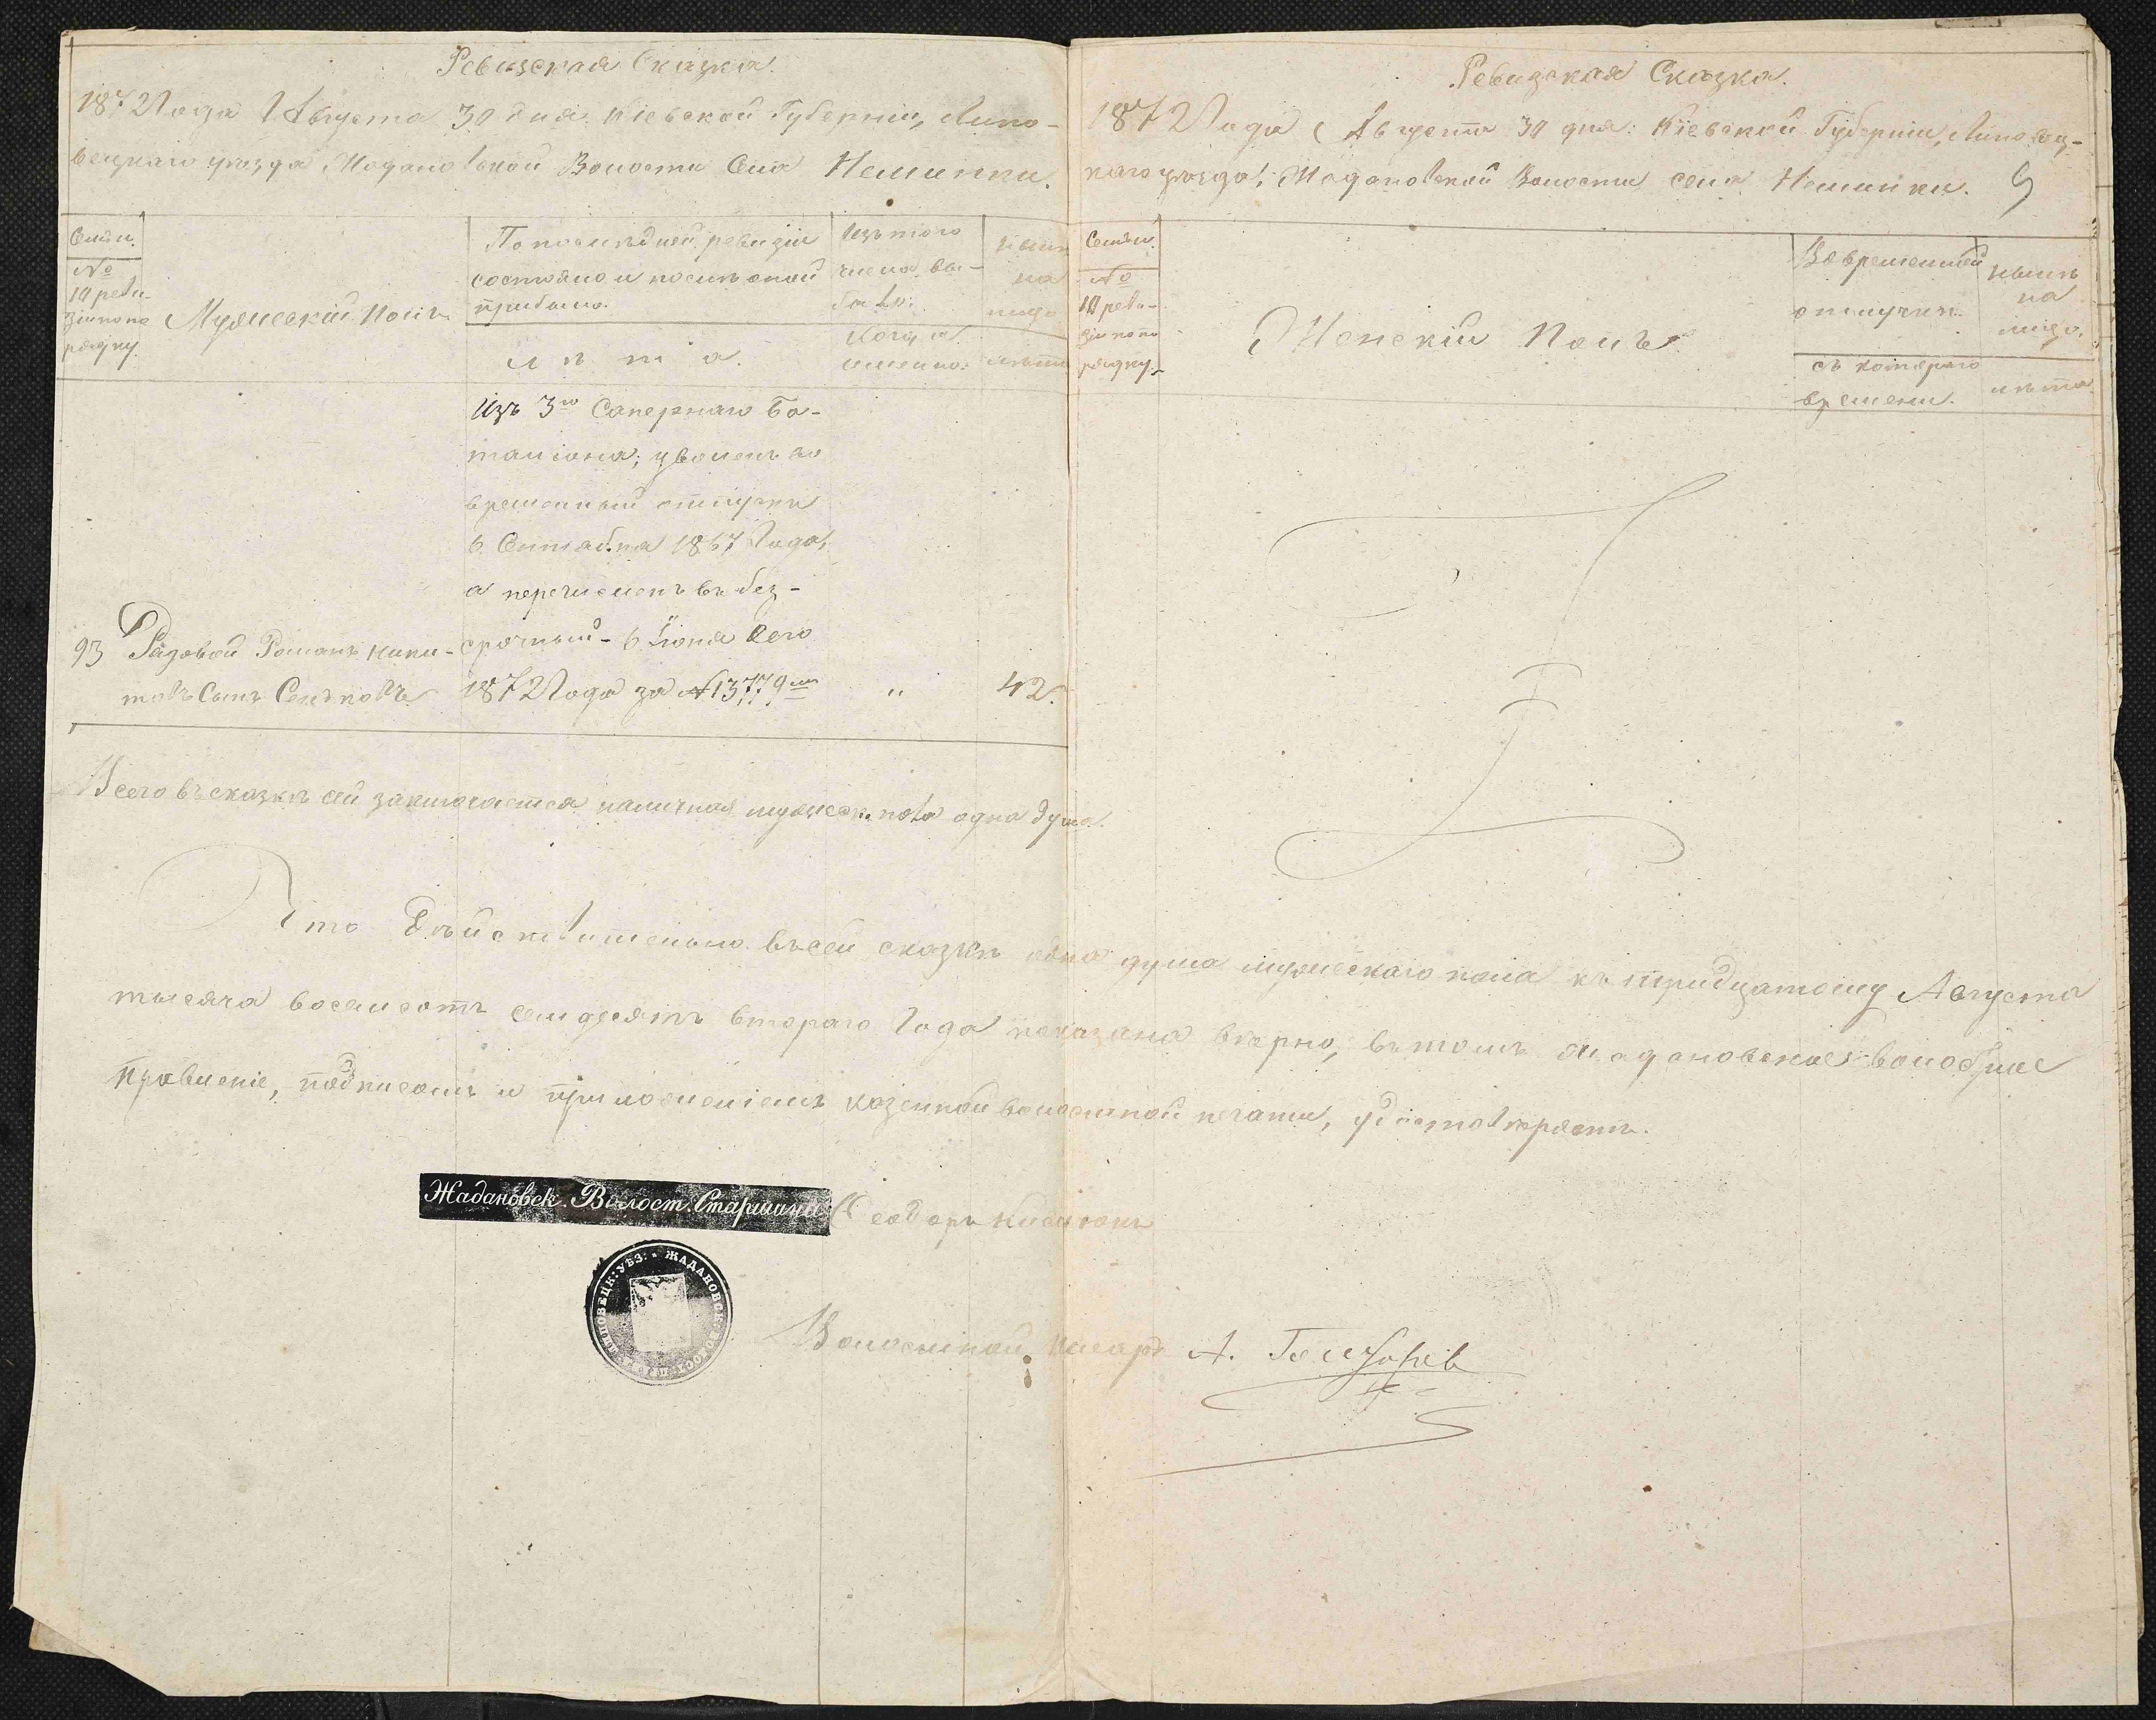 Ревизская Сказка.
1872 Года Августа 30 дня Кіевской Губерніи, Липо-
вецкаго уезда Жадановской Волости Села Неминки.
Семьи.
№
10 реви-
зіи по по
рядку
Мужескій Полъ
По последней ревизіи
состояло и послѣ оной
прибыло.
лѣта.
Изъ того
числа вы-
было.
Когда
именно.
нынѣ
на
лицо
лѣта
Изъ 3го Сапернаго Ба-
таліона, уволенъ во
временный отпускъ
6 Сентября 1867 Года,
а перечисленъ въ без-
93 Рядовой Романъ Ники- срочный - 6 Іюня сего
товъ Сынъ Сеньковъ 1872 Года за №13779мъ " 42.
Всего въ сказкѣ сей заключается наличная мужеск. пола одна душа.
Ревизская Сказка.
1872 Года Августа 30 дня Кіевской Губерніи, Липовец-
каго уезда, Жадановской Волости села Неминки. 9
Семьи.
№
10 реви-
зіи по по
рядку
Женскій Полъ
Во временной
отлучкѣ.
съ котораго
времени.
нынѣ
на
лицо.
лѣта
Что Дѣйствительно въ сей сказкѣ одна душа мужескаго пола къ тридцатому Августа
тысяча восемсотъ семдесятъ втораго Года показана вѣрно, въ томъ Жадановское волосное
Правленіе, подписомъ и приложеніемъ казенной волостной печати, удостовѣряетъ.
Жадановск. Волост. Старшина Ѳеодоръ
ЛИПОВЕЦК: УѢЗ: ЖАДАНОВСК:
Волостной Писарь А.